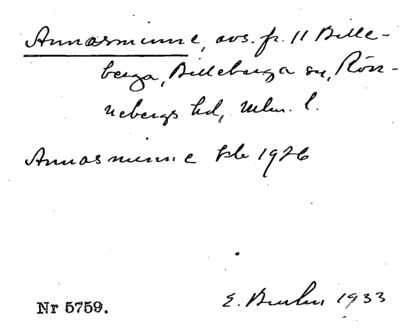 Annasminne, avs. fr. 11 Bille-
berga, Billeberga sn, Rön-
nebergs hd, Mlm. l.
Annasminne Pk 1926
Nr 5759.
E. 1933